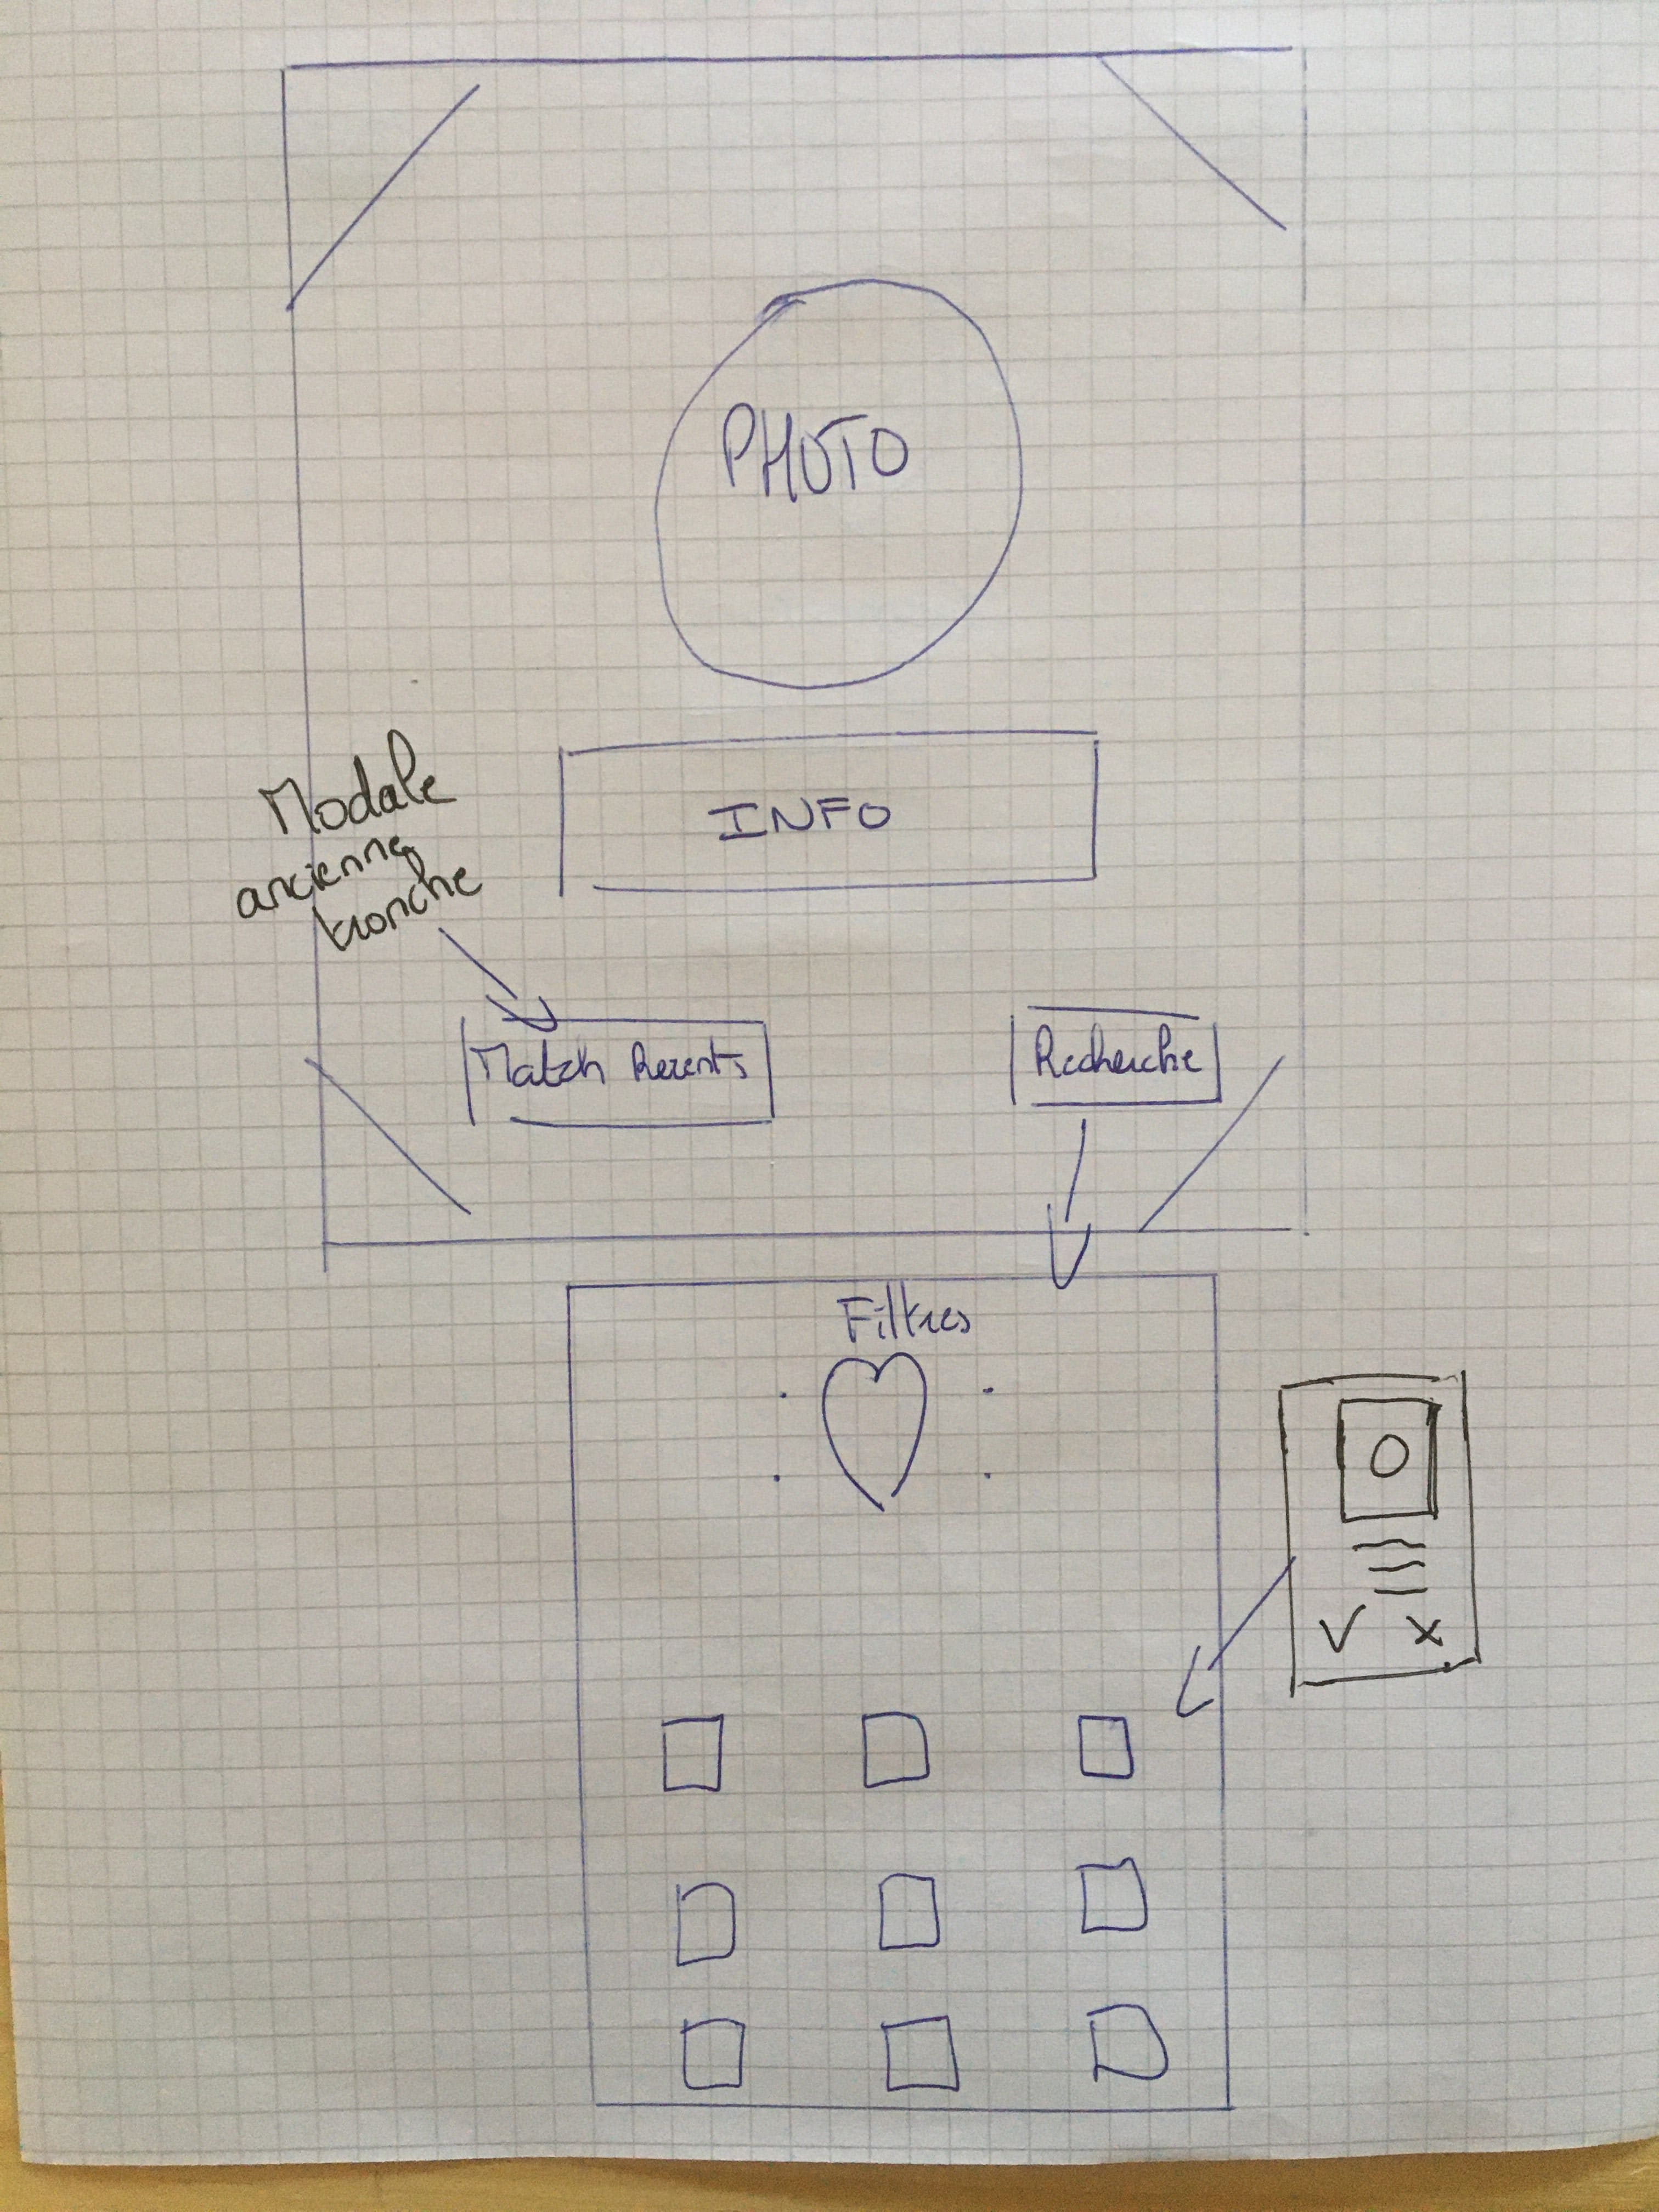 PHOTO
INFO
Modale
ancienne
tronche
Match Recents
Recherche
Filtres